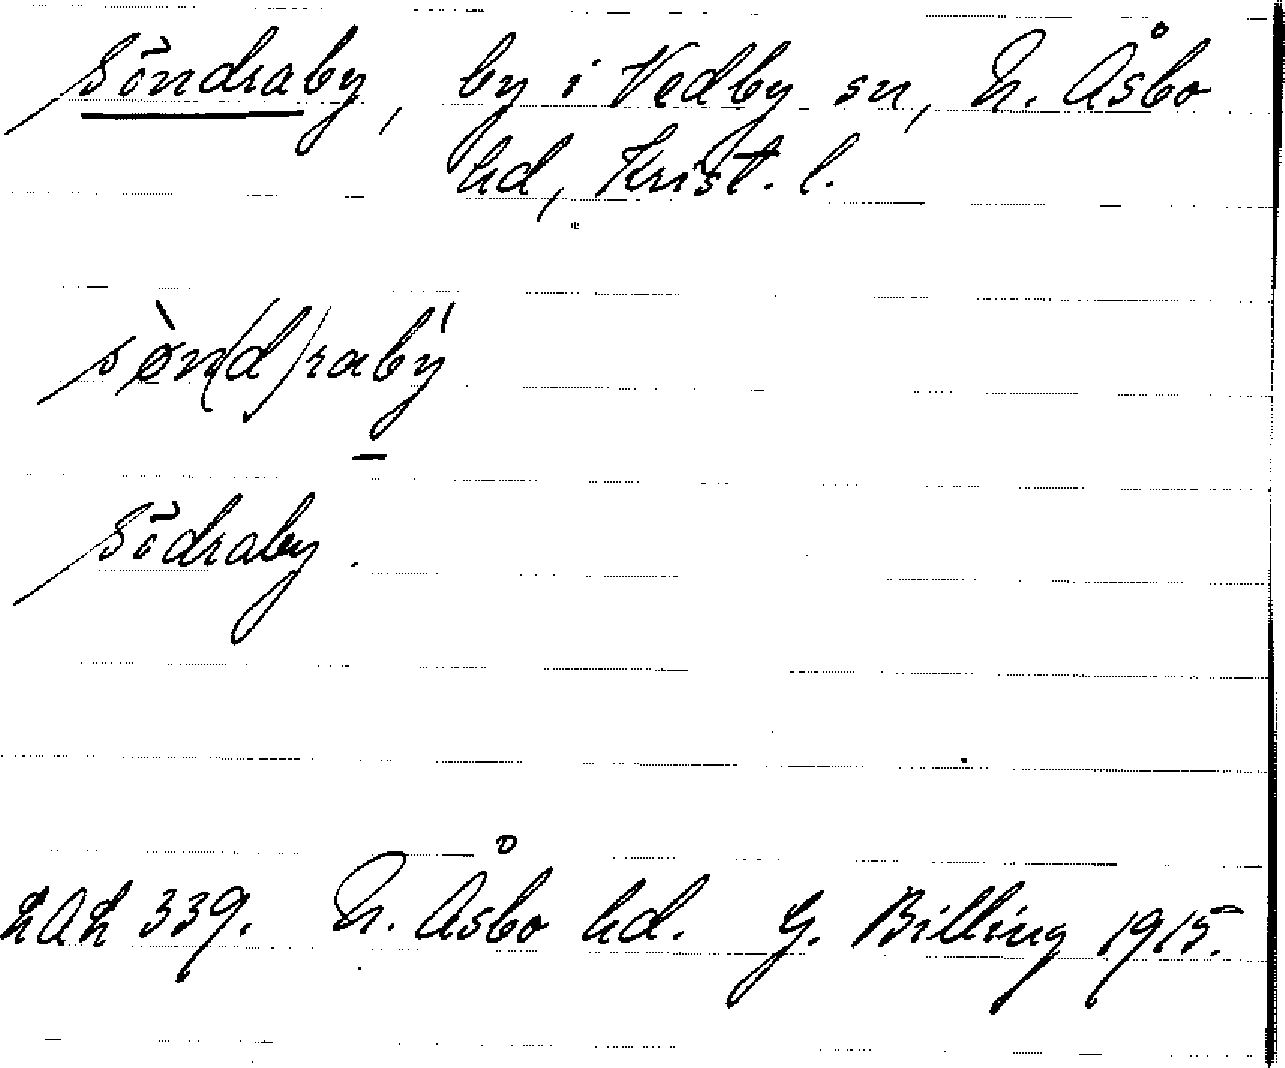 Söndraby, by i Vedby sn, N. Åsbo
hd, Krist. l.
sø̀n(d)rabý
Södraby.
LAL 339. N. Åsbo hd. G. Billing 1915.